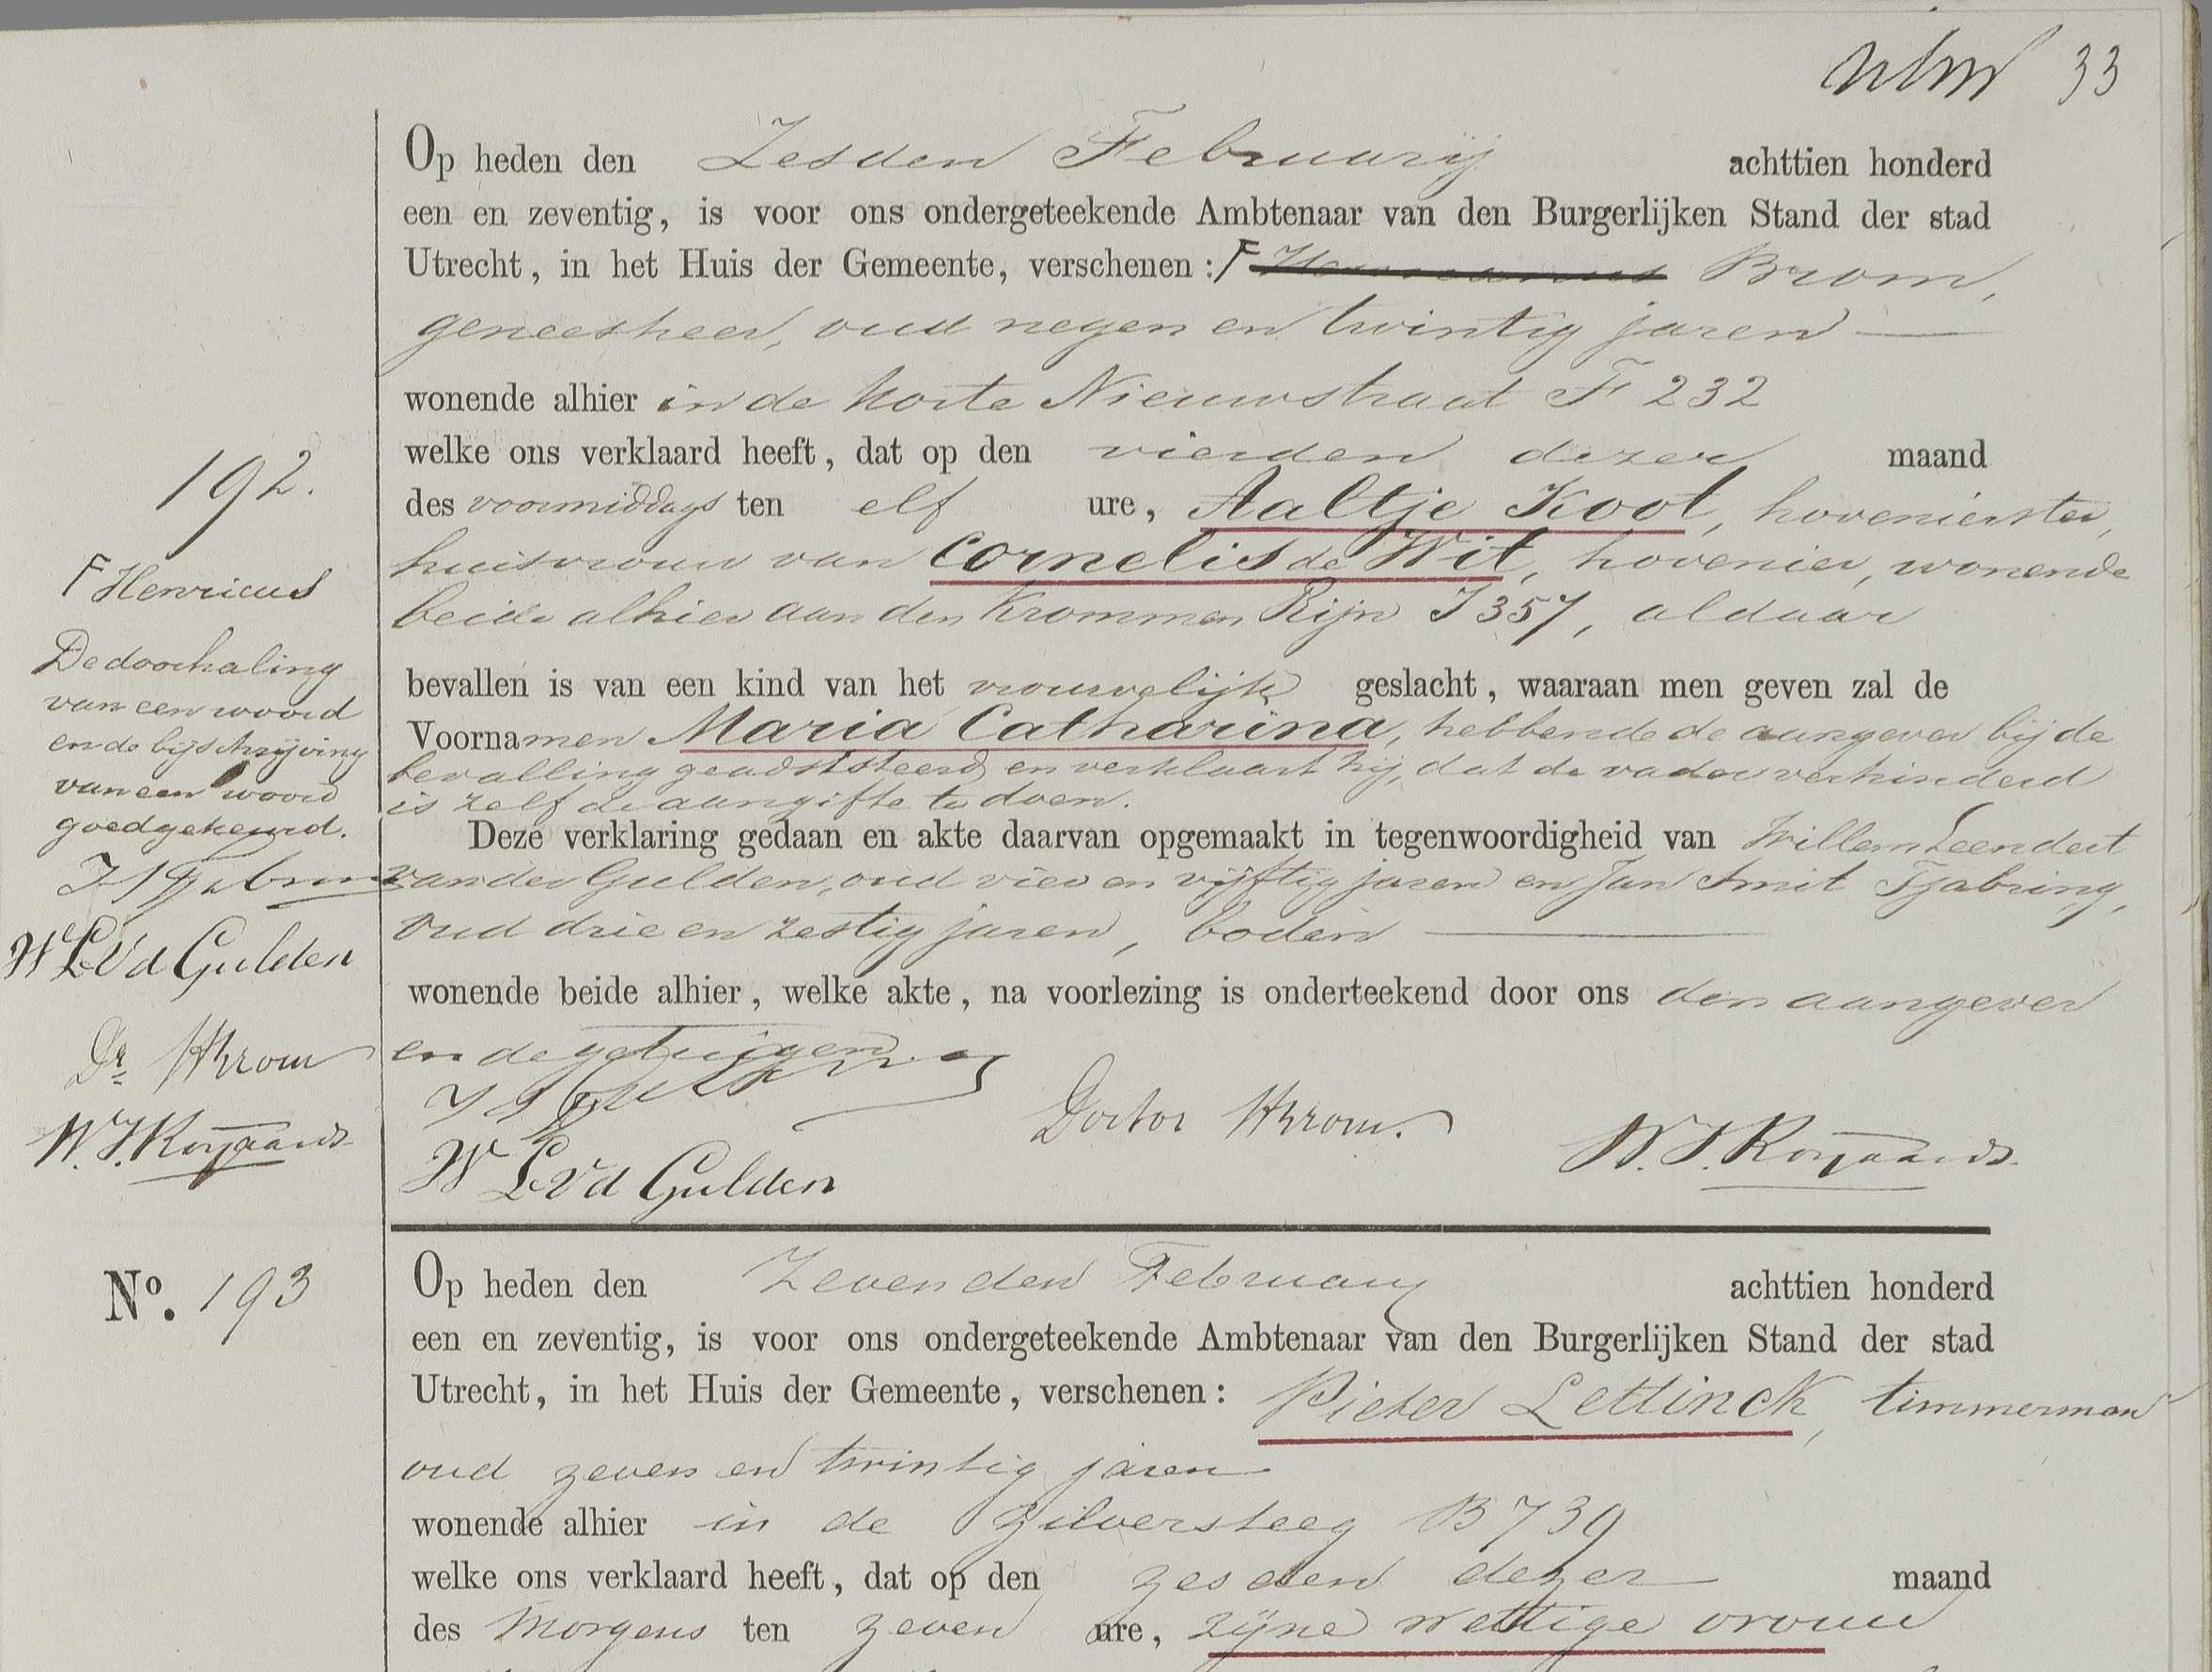 33
Op heden den Zesden Februarij achttien honderd
een en zeventig, is voor ons ondergeteekende Ambtenaar van den Burgerlijken Stand der stad
Utrecht, in het Huis der Gemeente, verschenen: F Hermanus Brom,
geneesheer, oud negen en twintig jaren
wonende alhier in de Korte Nieuwstraat F 232
welke ons verklaard heeft, dat op den vierden dezer maand
des voormiddags ten elf ure, Aaltje Kool, hovenierster,
huisvrouw van Cornelis de Wit, hovenier, wonende
beide alhier aan den Krommen Rijn I 357, aldaar
bevallen is van een kind van het vrouwelijk geslacht, waaraan men geven zal de
Voornamen Maria Catharina, hebbende de aangever bij de
bevalling geadsisteerd en verklaart hij, dat de vader verhinderd
is zelf de aangifte te doen.
Deze verklaring gedaan en akte daarvan opgemaakt in tegenwoordigheid van Willem Leendert
van der Gulden, oud vier en vijftig jaren en Jan Smit Tjabring,
oud drie en zestig jaren, boden
wonende beide alhier, welke akte, na voorlezing is onderteekend door ons den aangever
en de getuigen.
Doctor HBrom.
W. J. Royaards
W L Vd Gulden
192.
F Henricus
De doorhaling
van een woord
en de bijschrijving
van een woord
goedgekeurd.
W L Vd Gulden
Dr HBrom
W. J. Royaards
No. 193
Op heden den Zevenden February achttien honderd
een en zeventig, is voor ons ondergeteekende Ambtenaar van den Burgerlijken Stand der stad
Utrecht, in het Huis der Gemeente, verschenen: Pieter Lettinck, timmerman
oud zeven en twintig jaren
wonende alhier in de Zilversteeg B 739
welke ons verklaard heeft, dat op den zesden dezer maand
des Morgens ten zeven ure, zijne wettige vrouw